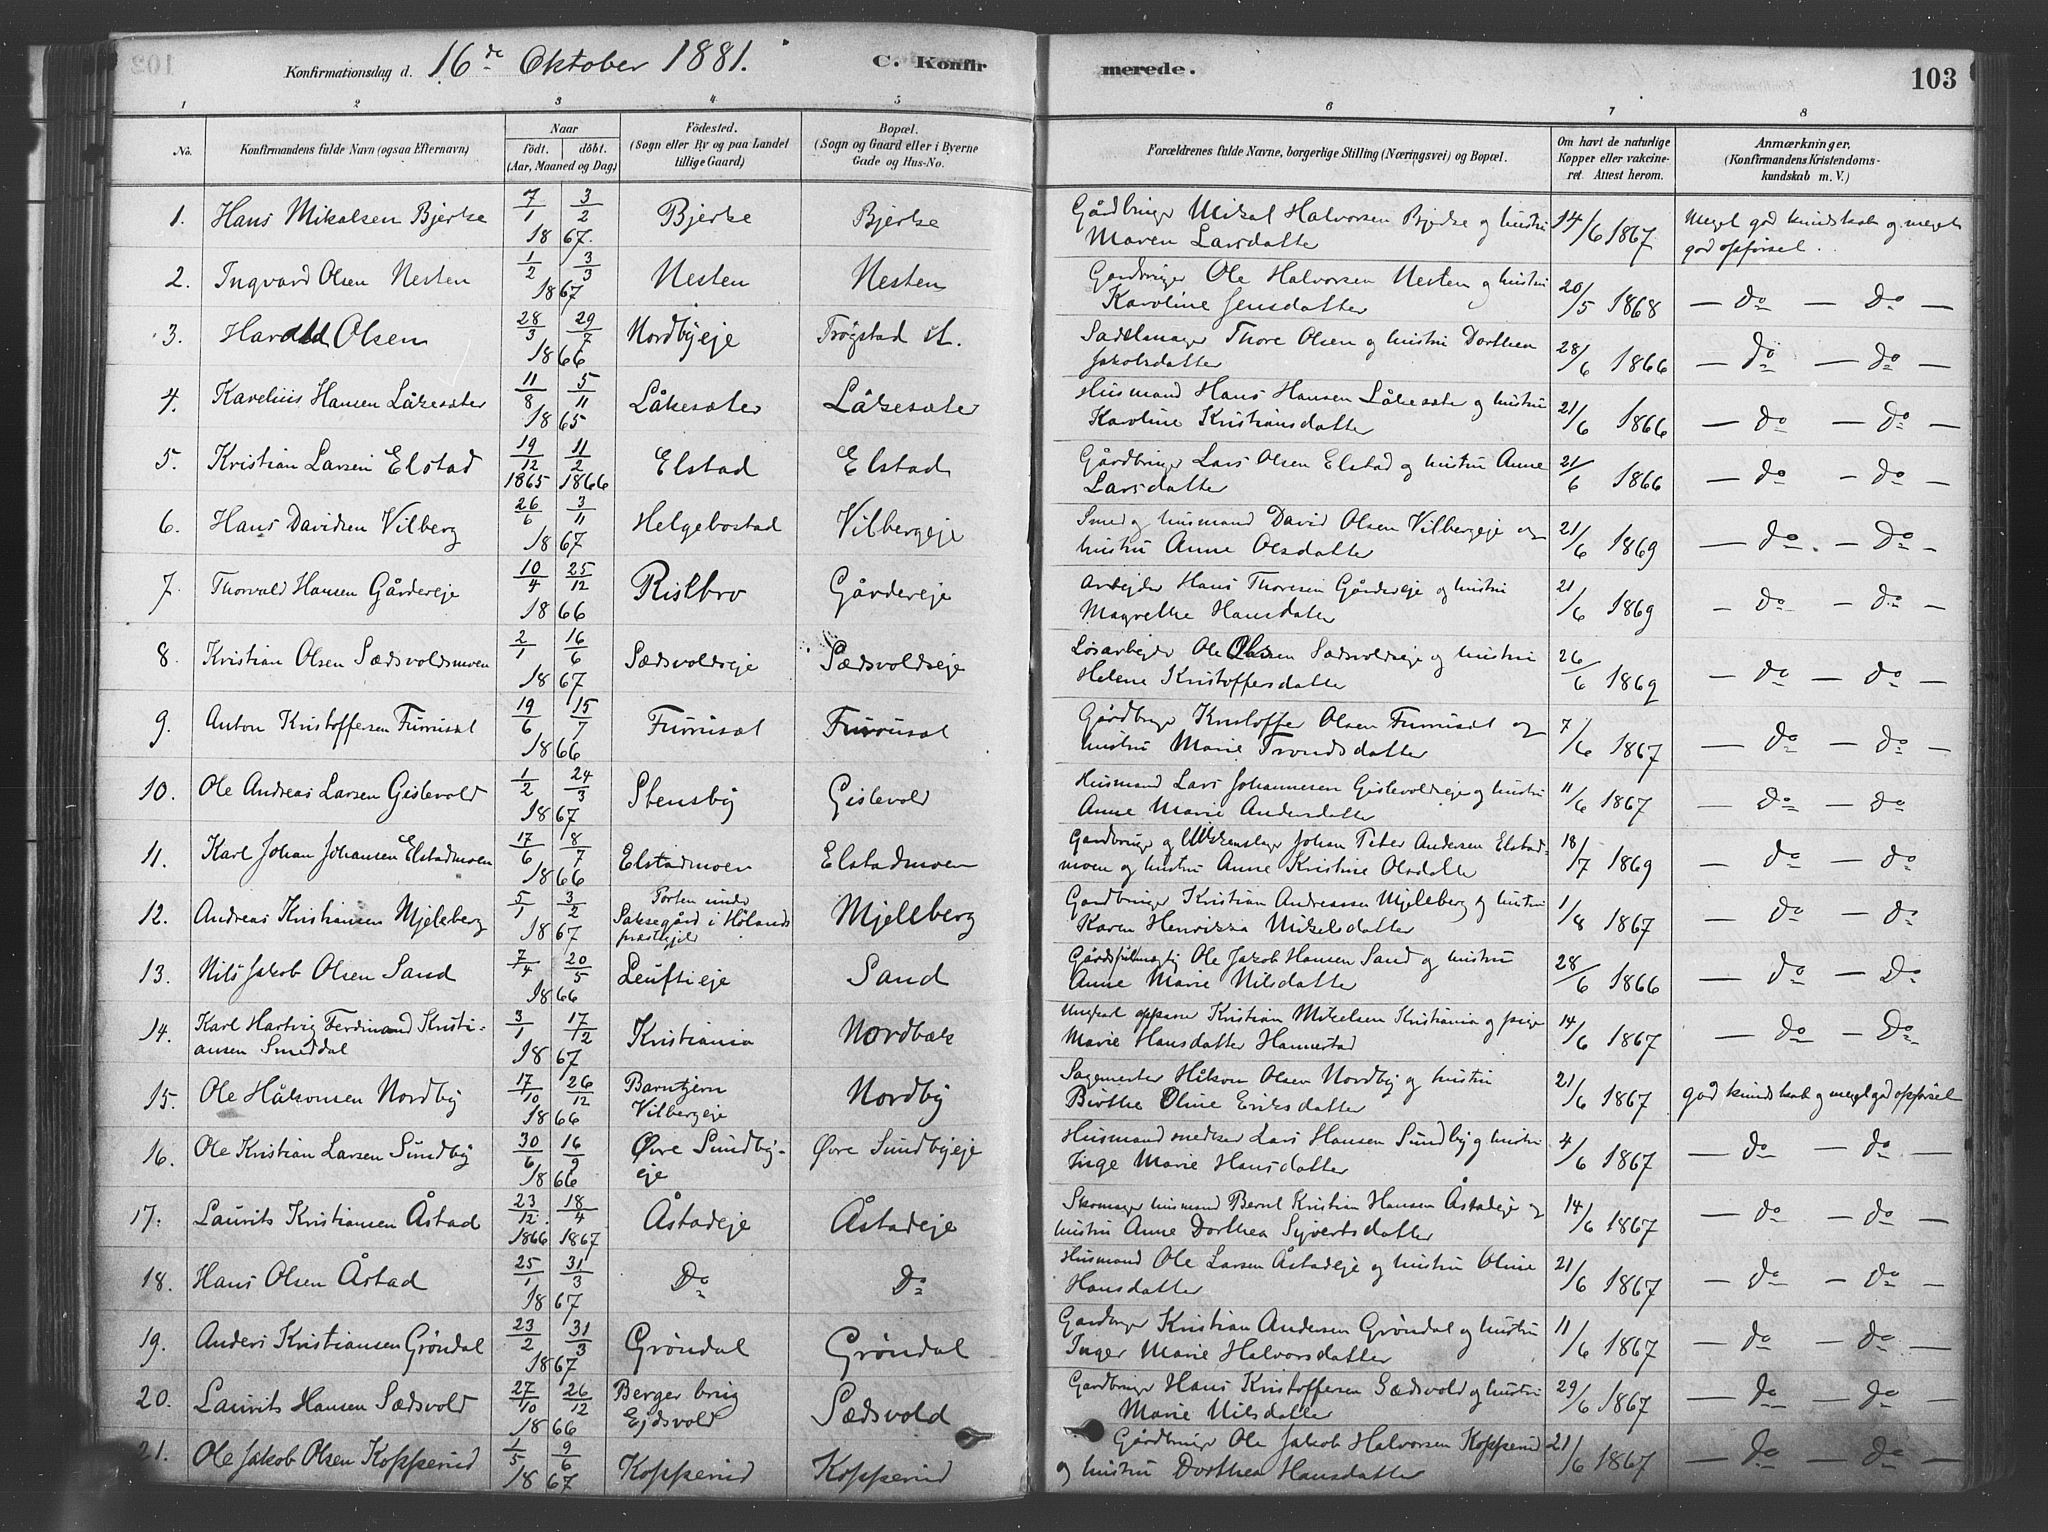 Konfirmationsdag d. 16de Oktober 1881. C. Konfirmerede. 103
1 2 3 4 5 6 7 8
No. Konfirmandens fulde Navn (ogsaa Efternavn) Naar Født. døbt. (Aar, Maaned og Dag) Fødested. (Sogn eller By og paa Landet tillige Gaard) Bopæl. (Sogn og Gaard eller i Byerne Gade og Hus-No. Forældrenes fulde Navne, borgerlige Stilling (Næringsvei) og Bopæl. Om havt de naturlige Kopper eller vakcineret. Attest herom. Anmærkninger. (Konfirmandens Kristendomskundskab m. V.)
1. Hans Mikalsen Bjerke 7/1 3/2 1867. Bjerke Bjerke Gårdbruger Mikal Halvorsen Bjerke og hustru Maren Larsdatter 14/6 1867 Meget god kundskab og meget god opførsel.
2. Ingvard Olsen Nesten 1/2 3/3 1867 Nesten Nesten Gardbruger Ole Halvorsen Nesten og hustru Karoline Jensdatter 20/5 1868 — do — do —
3. Harald Olsen 28/3 29/7 1866 Nordbyeje Trøgstad A. Sadelmager Thore Olsen og hustru Dorthea Jakobsdatter 28/6 1866 — do — do —
4. Karelius Hansen Låkesæter 11/8 5/11 1865 Låkesæter Låkesæter Husmand Hans Hansen Låkesæter og hustru Karoline Kristiansdatter 21/6 1866 — do — do —
5. Kristian Larsen Elstad 19/12 1865 11/2 1866 Elstad Elstad Gårdbruger Lars Olsen Elstad og hustru Anne Larsdatter 21/6 1866 — do — do —
6. Hans Davidsen Vilberg 26/6 3/11 1867 Helgebostad Vilbergeje Smed og husmand David Olsen Vilbergeje og hustru Anne Olsdatter 21/6 1869 — do — do —
7. Thorvald Hansen Gårdereje 10/4 25/12 1866 Risebro Gårdereje Arbejder Hans Thoresen Gårdereje og hustru Magrethe Hansdatter 21/6 1869 — do — do —
8. Kristian Olsen Sædsvoldsmoen 2/1 16/6 1867 Sædsvoldseje Sædsvoldseje Løsarbejder Ole Olsen Sædsvoldseje og hustru Helene Kristoffersdatter 26/6 1869 — do — do —
9. Anton Kristoffersen Furruset 19/6 15/7 1866 Furruset Furruset Gårdbruger Kristoffer Olsen Furruset og hustru Marie Trondsdatter 7/6 1867 — do — do —
10. Ole Andreas Larsen Gislevold 1/2 24/3 1867 Stensby Gislevold Husmand Lars Johannesen Gislevoldseje og hustru Anne Marie Andersdatter 11/6 1867 — do — do —
11. Karl Johan Johansen Elstadmoen 17/6 8/7 1866 Elstadmoen Elstadmoen Gardbruger og Johan Peter Andersen Elstadmoen og hustru Anne Kristine Olsdatter 18/7 1869 — do — do —
12. Andreas Kristiansen Mjeleberg 5/1 3/2 1867 Porten under Saksegård i Hølands præstegjeld Mjeleberg Gardbruger Kristian Andreassen Mjeleberg og hustru Karen Henrikka Mikelsdatter 1/8 1867 — do — do
13. Nils Jakob Olsen Sand 7/4 20/5 1866 Leuftieje Sand Gårdsfuldmægtig Ole Jakob Hansen Sand og hustru Anne Marie Nilsdatter 28/6 1866 — do — do
14. Karl Hartvig Ferdinand Kristiansen Smeddal 3/1 17/2 1867 Kristiania Nordbæk Ungkarl opparter Kristian Mikelsen Kristiania og pige Marie Hansdatter Hammerstad 14/6 1867 — do — do
15. Ole Håkonsen Nordby 17/10 26/12 1866 Barntjern Vilbergeje Nordby Sagmester Håkon Olsen Nordby og hustru Birthe Oline Eriksdatter 21/6 1867 god kundskab og meget god opførsel
16. Ole Kristian Larsen Sundby 30/6 16/9 1866 Øvre Sundbyeje Øvre Sundbyeje Husmand snedker Lars Hansen Sundby og hustru Inge Marie Hansdatter 4/6 1867 — do — do —
17. Laurits Kristiansen Åstad 23/12 1866 18/4 1867 Åstadeje Åstadeje Skomager husmand Bernt Kristian Hansen Åstadeje og hustru Anne Dorthea Syvertsdatter 14/6 1867 — do — do —
18. Hans Olsen Åstad 25/1 31/3 1867 Do Do Husmand Ole Larsen Åstadeje og hustru Oline Hansdatter 21/6 1867 — do — do —
19. Anders Kristiansen Grøndal 23/2 31/3 1867 Grøndal Grøndal Gardbruger Kristian Andersen Grøndal og hustru Inger Marie Halvorsdatter 11/6 1867 — do — do —
20. Laurits Hansen Sædsvold 27/10 26/12 1866 Berger brug Ejdsvold Sædsvold Gardbruger Hans Kristoffersen Sædsvold og hustru Marie Nilsdatter 29/6 1867 — do — do —
21. Ole Jakob Olsen Kopperud 1/5 9/6 1867 Kopperud Kopperud Gårdbruger Ole Jakob Halvorsen Kopperud og hustru Dorthea Hansdatter 21/6 1867 — do — do —